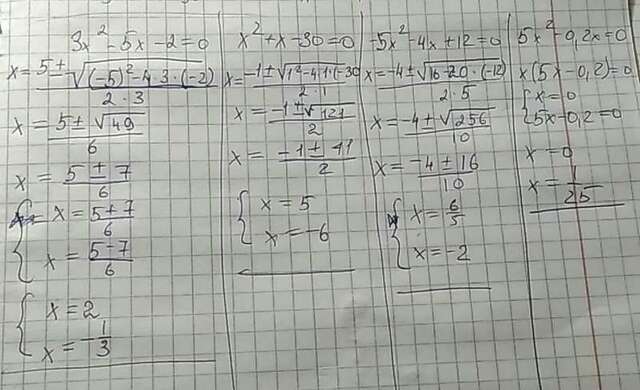 3x² - 5x - 2 = 0
x = (5 ± √((-5)² - 4·3·(-2))) / (2·3)
x = (5 ± √49) / 6
x = (5 ± 7) / 6
{ x = (5+7) / 6
x = (5-7) / 6
{ x = 2
x = -1/3
x² + x - 30 = 0
x = (-1 ± √(1² - 4·1·(-30) / (2·1)
x = (-1 ± √121) / 2
x = (-1 ± 11) / 2
{ x = 5
x = -6
-5x² - 4x + 12 = 0
x = (-4 ± √(16 - 20·(-12))) / (2·5)
x = (-4 ± √256) / 10
x = (-4 ± 16) / 10
{ x = 6/5
x = -2
5x² - 0,2x = 0
x(5x - 0,2) = 0
{ x = 0
5x - 0,2 = 0
x = 0
x = 1/25